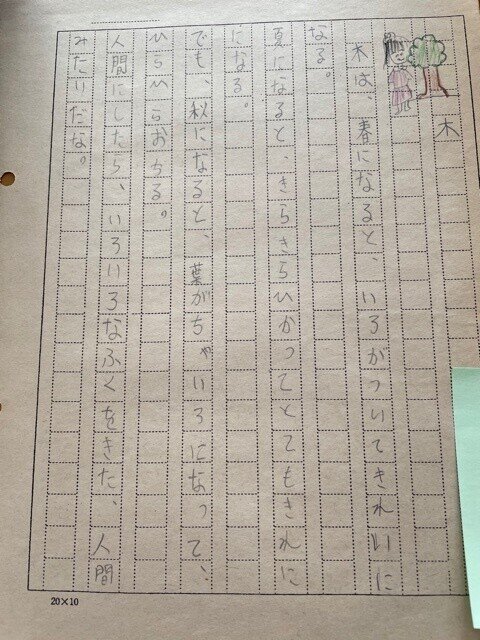 木
木は、春になると、いろがついてきれいに
なる。
夏になると、きらきらひかってとてもきれに
になる。
でも、秋になると、葉がちゃいろになって、
ひらひらおちる。
人間にしたら、いろいろなふくをきた、人間
みたいだな。
20×10